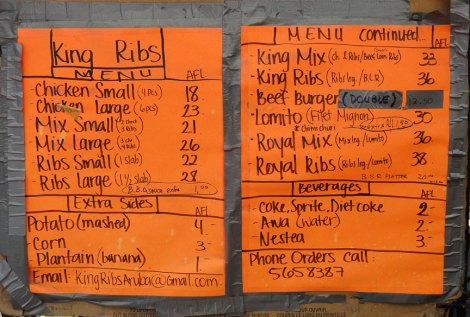 King Ribs
MENU AFL
-Chicken Small (4 pcs) 18
-Chicken Large (6 pcs) 23
-Mix Small (2 Chick 3 Ribs) 21
-Mix Large (3 Chick 4 Ribs) 26
-Ribs Small (1 slab) 22
-Ribs Large (1½ slab) 28
B.B.Q sauce extra 1.00
Extra Sides
AFL
Potato (mashed) 4.-
-Corn 3-
-Plantain (banana) 1.
Email: KingRibsAruba@Gmail.com
MENU continued...
AFL
-King Mix 33
-King Ribs (Ribs lrg./B.L.R) 36
-Beef Burger (DOUBLE) 12.50
-Lomito (Filet Mignon) 30
& Chimi churi
-Royal Mix (Mix lrg/Lomito) 36
-Royal Ribs (Ribs lrg/Lomito) 38
Beverages
AFL
-Coke, Sprite, Diet coke 2-
-Awa (water) 2-
-Nestea 3-
Phone Orders call:
5658387